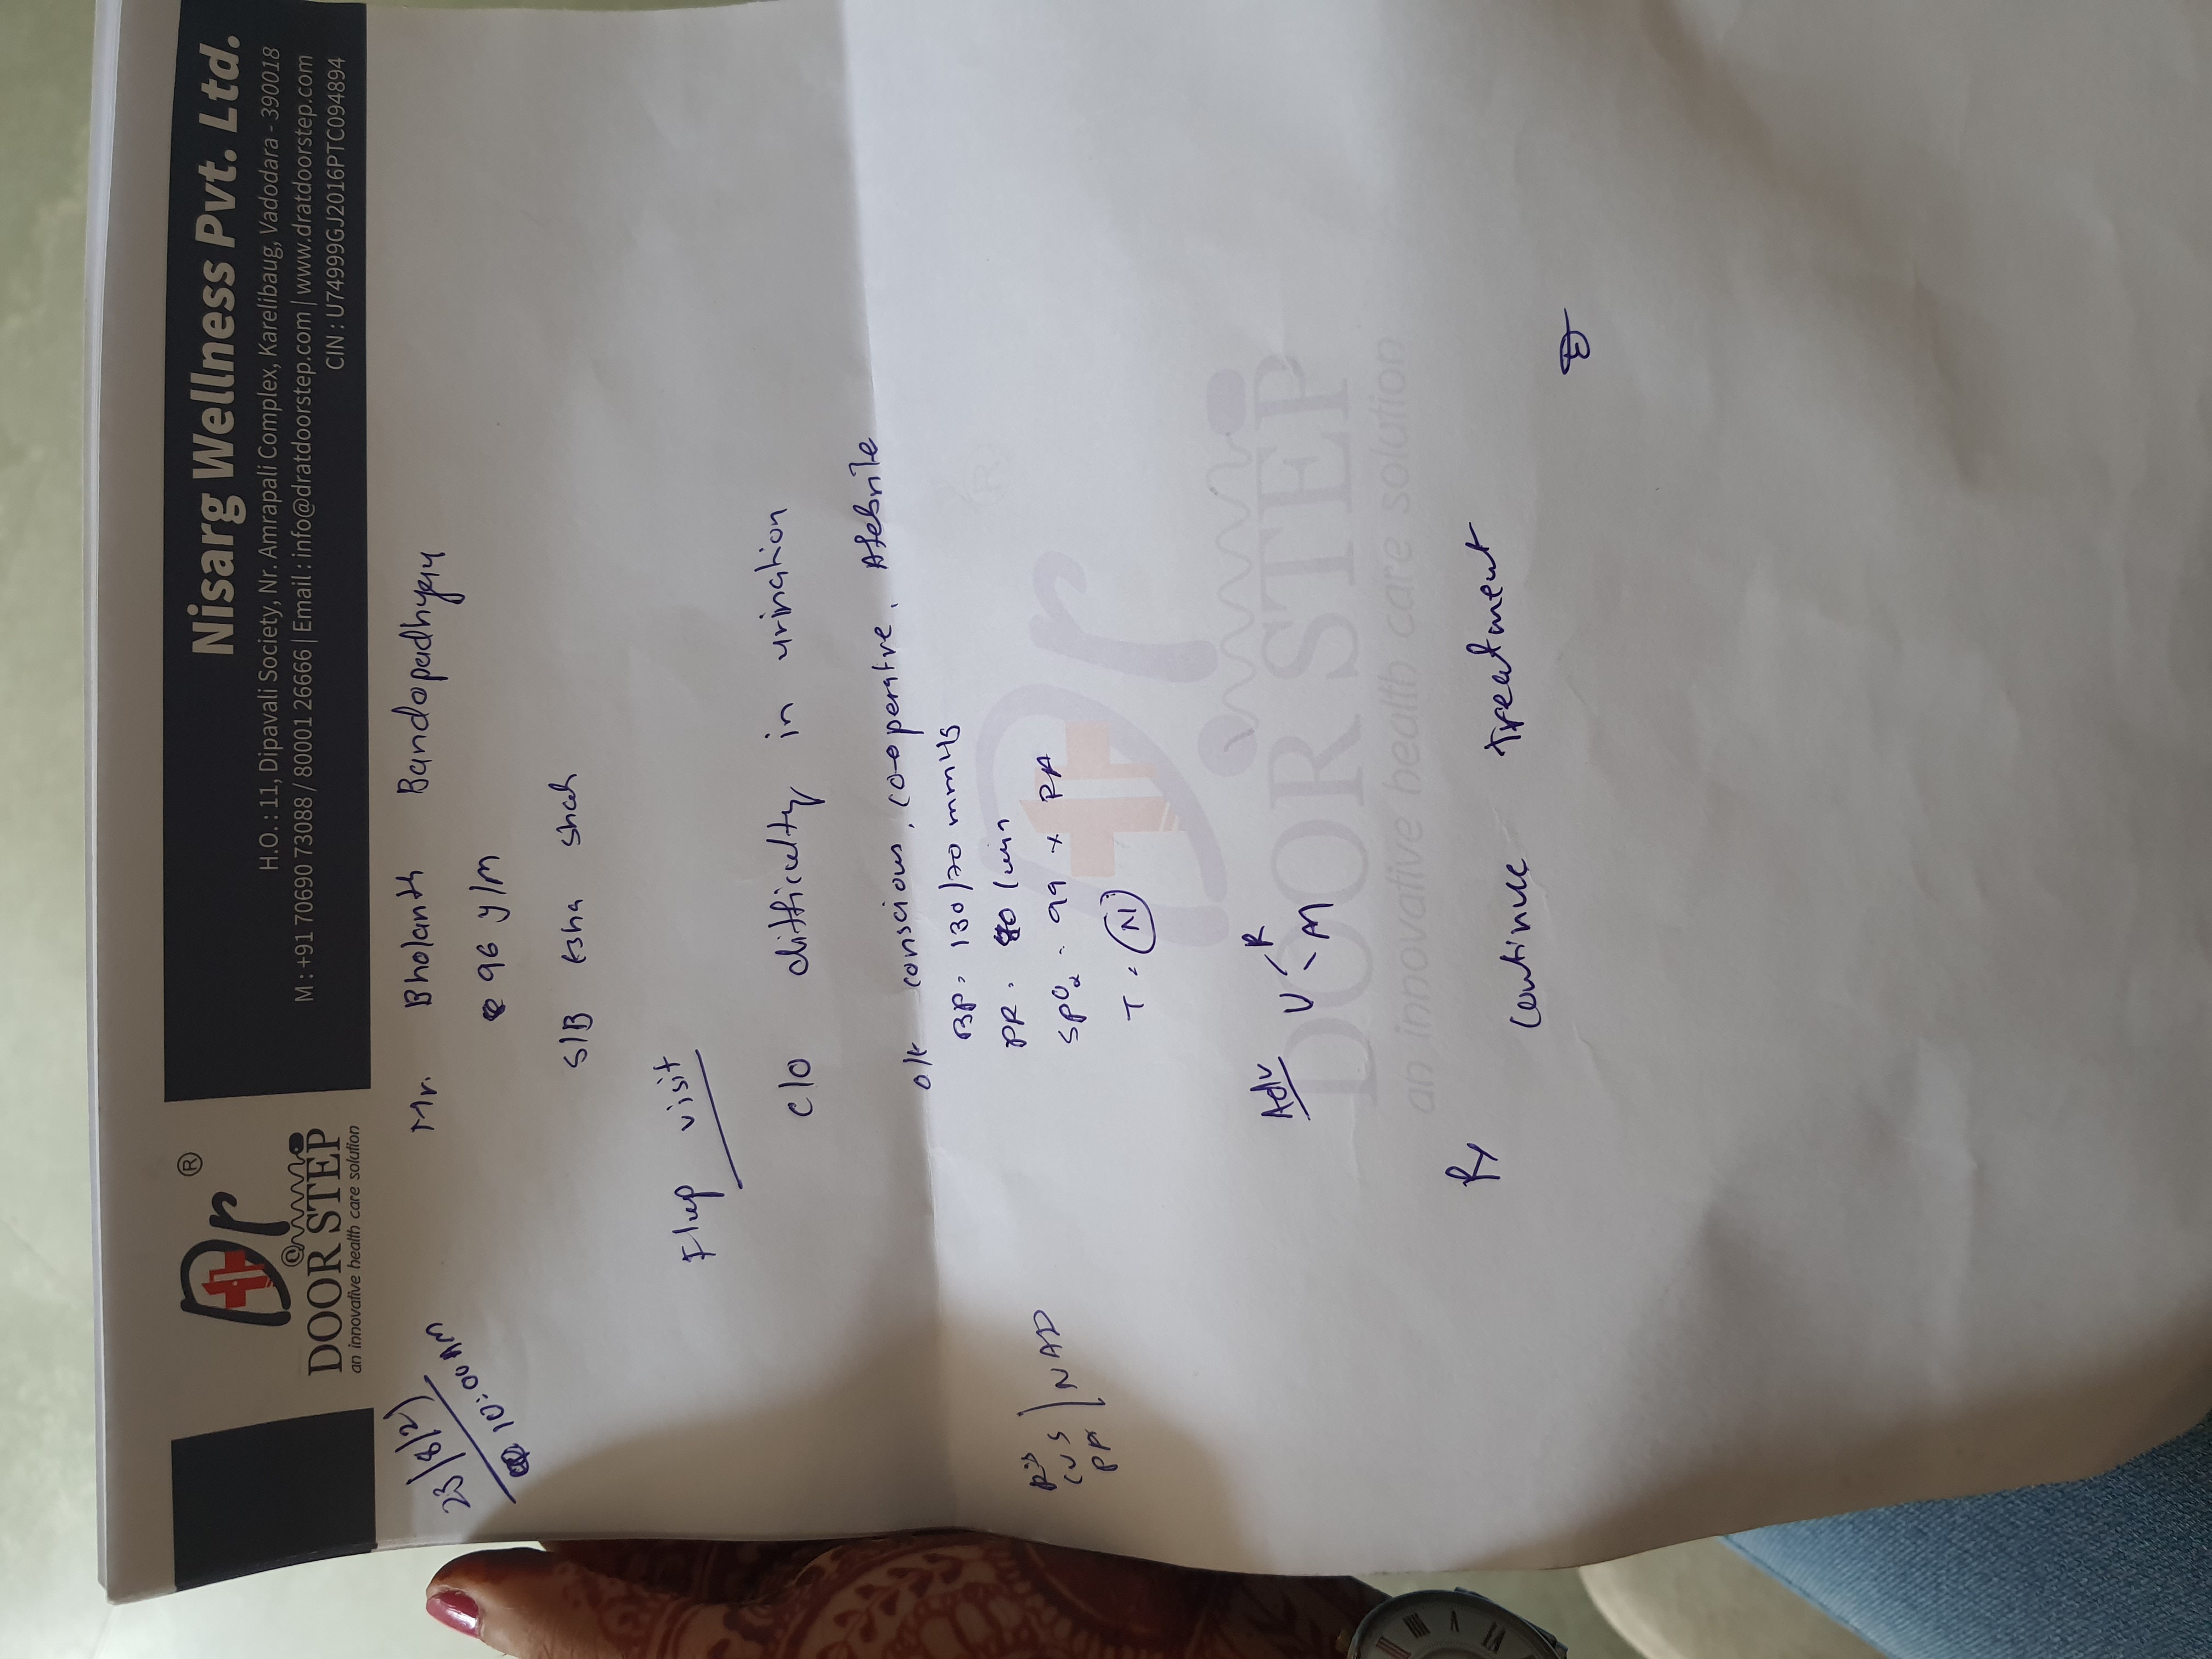 Dr ®
DOOR STEP
an innovative health care solution
Nisarg Wellness Pvt. Ltd.
H.O. : 11, Dipavali Society, Nr. Amrapali Complex, Karelibaug, Vadodara - 390018
M : +91 70690 73088 / 80001 26666 | Email : info@dratdoorstep.com | www.dratdoorstep.com
CIN : U74999GJ2016PTC094894
23/8/21
@ 10:00 AM
Mr. Bholanth Bandopadhyay
96 y/M
S/B Esha Shah
F/up visit
c/o difficulty in urination
o/E conscious, co-operative, Afebrile
BP = 130/70 mmHg
PR = 80/min
SpO2 = 99 % RA
T = N
RS
CVS NAD
PA
Adv U R
M
Rx
continue treatment
Dr
DOOR STEP
an innovative health care solution